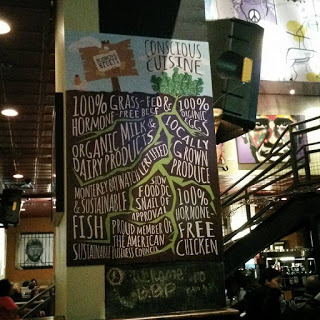 CONSCIOUS
CUISINE
100% GRASS-FED &
HORMONE-FREE BEEF
100%
ORGANIC
EGGS
ORGANIC MILK &
DAIRY PRODUCTS
LOCALLY
GROWN
PRODUCE
MONTEREY BAY WATCH CERTIFIED
& SUSTAINABLE
FISH
SLOW
FOOD DC
SNAIL OF
APPROVAL
100%
HORMONE
FREE
CHICKEN
PROUD MEMBER OF
THE AMERICAN
SUSTAINABLE BUSINESS COUNCIL
Welcome to